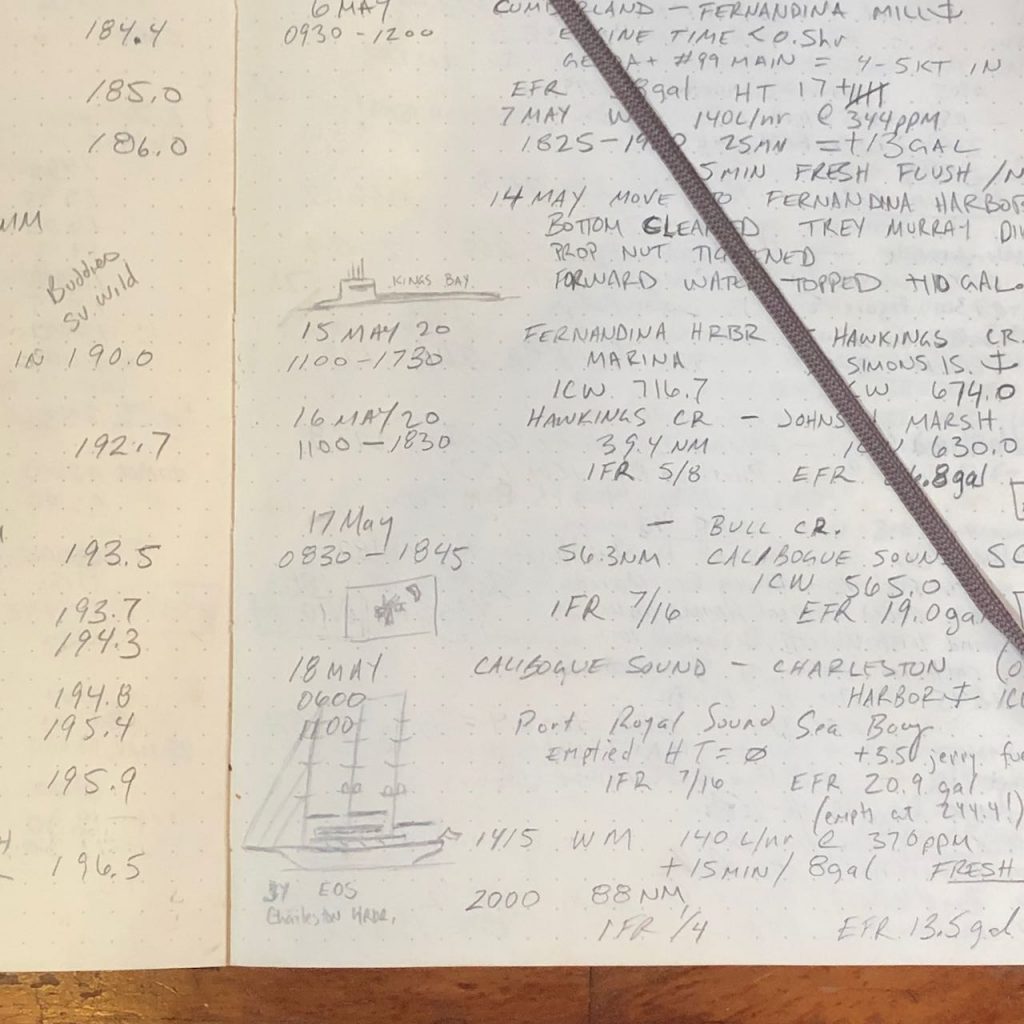 184.4
185.0
186.0
Buddies
SV Wild
IN 190.0
192.7
193.5
193.7
194.3
194.8
195.4
195.9
196.5
6 MAY
0930 - 1200
- FERNANDINA MILL
TIME < 0.5hr
#99 MAIN = 4-5KT IN
EFR gal HT 17+
7 MAY 140L/hr @ 344ppm
1825- 25MN =+13GAL
5MIN FRESH FLUSH
14 MAY MOVE FERNANDINA HARBOR
BOTTOM TREY MURRAY
PROP NUT
FORWARD TOPPED +10 GAL.
KINGS BAY
15 MAY 20 FERNANDINA HRBR - HAWKINGS CR.
1100-1730 MARINA SIMONS IS.
ICW 716.7 674.0
16 MAY/20 HAWKINGS CR - MARSH
1100-1830 39.4 NM 630.0
IFR 5/8 EFR gal
17 May - BULL CR.
0830-1845 56.3NM CALABOGUE SC
ICW 565.0
IFR 7/16 EFR 19.0gal
18 MAY CALIBOGUE SOUND - CHARLESTON
0600 HARBOR
1100 Port Royal Sound Sea Bouy
Emptied HT=Ø +5.5 jerry
IFR 7/16 EFR 20.9 gal
1415 WM 140 L/hr @ 370ppm
+15MIN/ 8gal FRESH
SY EOS
Charleston HRBR,
2000 88NM
IFR 1/4 EFR 13.5gal